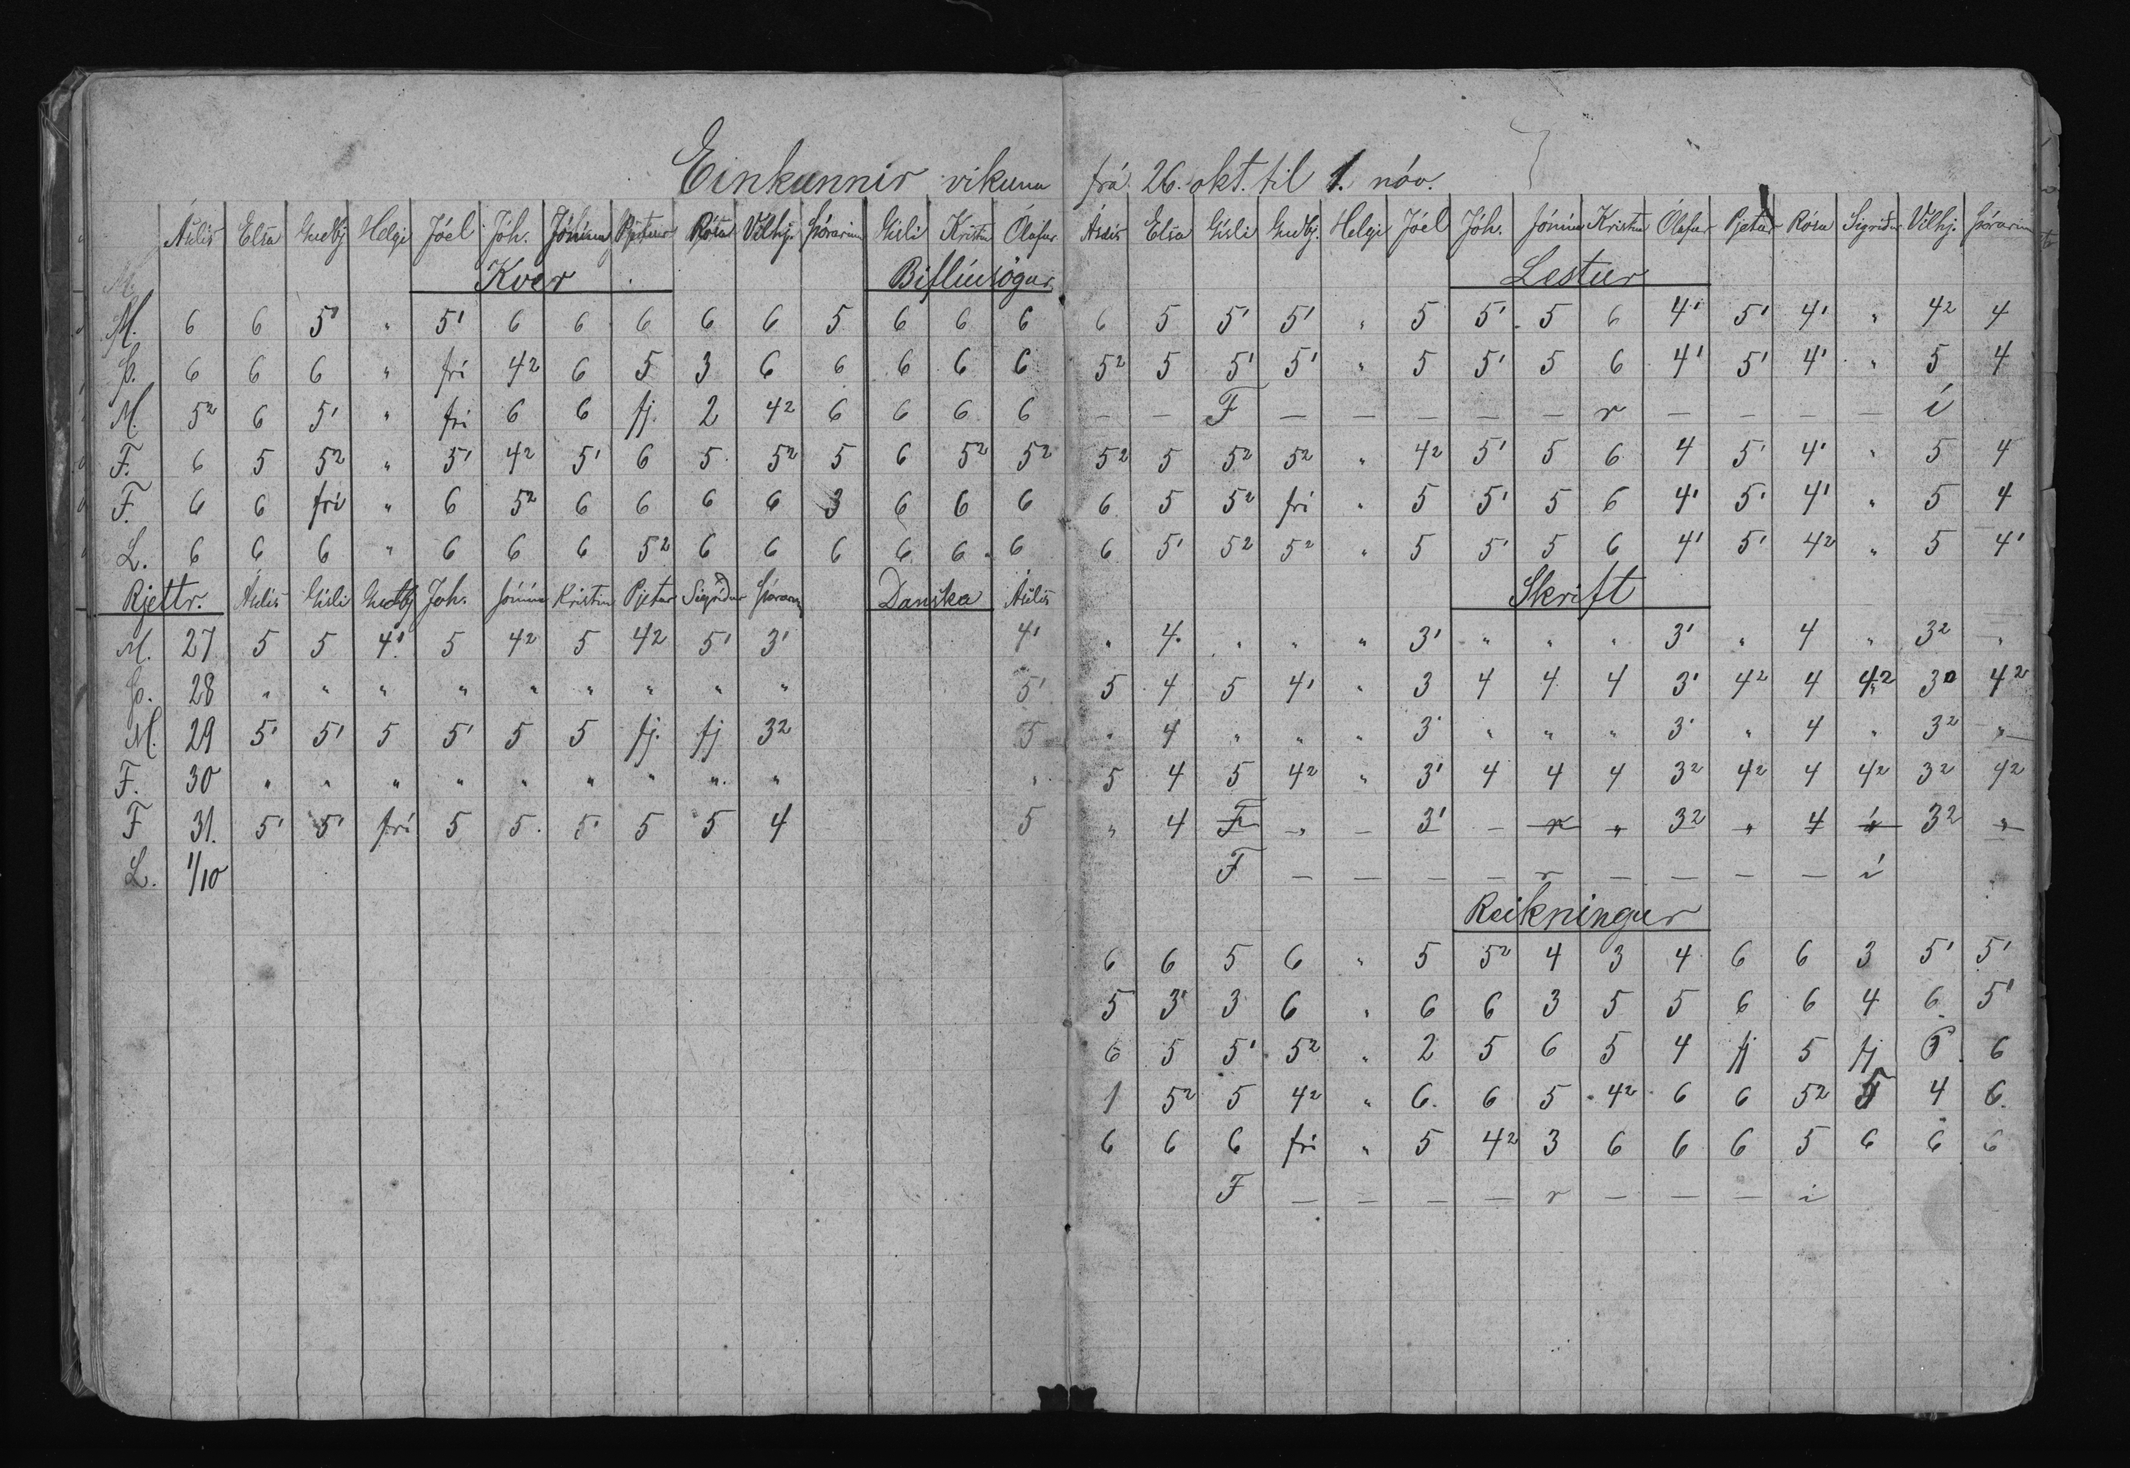 Einkunnir vikuna frá 26. okt. til 1. nóv.
Ásdís Elsa Guðbj Helgi Jóel Jóh. Jónína Pjetur Rósa Vilhj. Þórarinn Gísli Kristín Ólafur
Kver Biflíusögur
M. 6 6 5¹ " 5¹ 6 6 6 6 6 5 6 6 6
Þ. 6 6 6 " frí 4² 6 5 3 6 6 6 6 6
M. 5² 6 5¹ " frí 6 6 fj. 2 4² 6 6 6 6
F. 6 5 5² " 5¹ 4² 5¹ 6 5 5² 5 6 5² 5²
F. 6 6 frí " 6 5² 6 6 6 6 3 6 6 6
L. 6 6 6 " 6 6 6 5² 6 6 6 6 6 6
Rjettr. Ásdís Gísli Guðbj Jóh. Jónína Kristín Pjetur Sigríður Þórarinn Danska Ásdís
M. 27 5 5 4¹ 5 4² 5 4² 5¹ 3¹ 4¹
Þ. 28 " " " " " " " " " 5¹
M. 29 5¹ 5¹ 5 5¹ 5 5 fj. fj 3² 5
F. 30 " " " " " " " " " "
F 31. 5¹ 5¹ frí 5 5 5¹ 5 5 4 5
L. 1/10
Ásdís Elsa Gísli Guðbj. Helgi Jóel Jóh. Jónína Kristín Ólafur Pjetur Rósa Sigríður Vilhj. Þórarinn
Lestur
6 5 5¹ 5¹ " 5 5¹ 5 6 4¹ 5¹ 4¹ " 4² 4
5² 5 5¹ 5¹ " 5 5¹ 5 6 4¹ 5¹ 4¹ " 5 4
— — F — — — — — r — — — — í
5² 5 5² 5² " 4² 5¹ 5 6 4 5¹ 4¹ " 5 4
6 5 5² frí " 5 5¹ 5 6 4¹ 5¹ 4¹ " 5 4
6 5¹ 5² 5² " 5 5¹ 5 6 4¹ 5¹ 4² " 5 4¹
Skrift
" 4 " " " 3¹ " " " 3¹ " 4 " 3² "
5 4 5 4¹ " 3 4 4 4 3¹ 4² 4 4² 3² 4²
" 4 " " " 3¹ " " " 3¹ " 4 " 3² "
5 4 5 4² " 3¹ 4 4 4 3² 4² 4 4² 3² 4²
" 4 F " — 3¹ — r " 3² " 4 í 3² "
F — — — — r — — — — í
Reikningur
6 6 5 6 " 5 5² 4 3 4 6 6 3 5¹ 5¹
5 3¹ 3 6 " 6 6 3 5 5 6 6 4 6 5¹
6 5 5¹ 5² " 2 5 6 5 4 fj 5 fj 6
1 5² 5 4² " 6 6 5 4² 6 6 5² 5 4 6
6 6 6 frí " 5 4² 3 6 6 6 5 6 6 6
F — — — — r — — — í